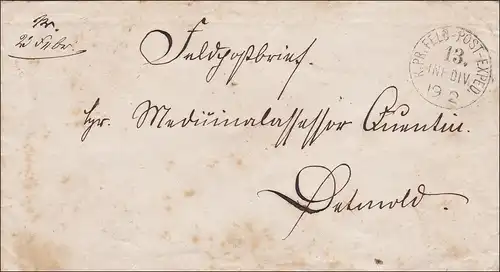 pr.
22 Febr.
Feldpostbrief.
K.PR.FELD-POST-EXPED.
13.
INF.DIV.
19 2
Hr. Medicinalassessor Quentin.
Detmold.